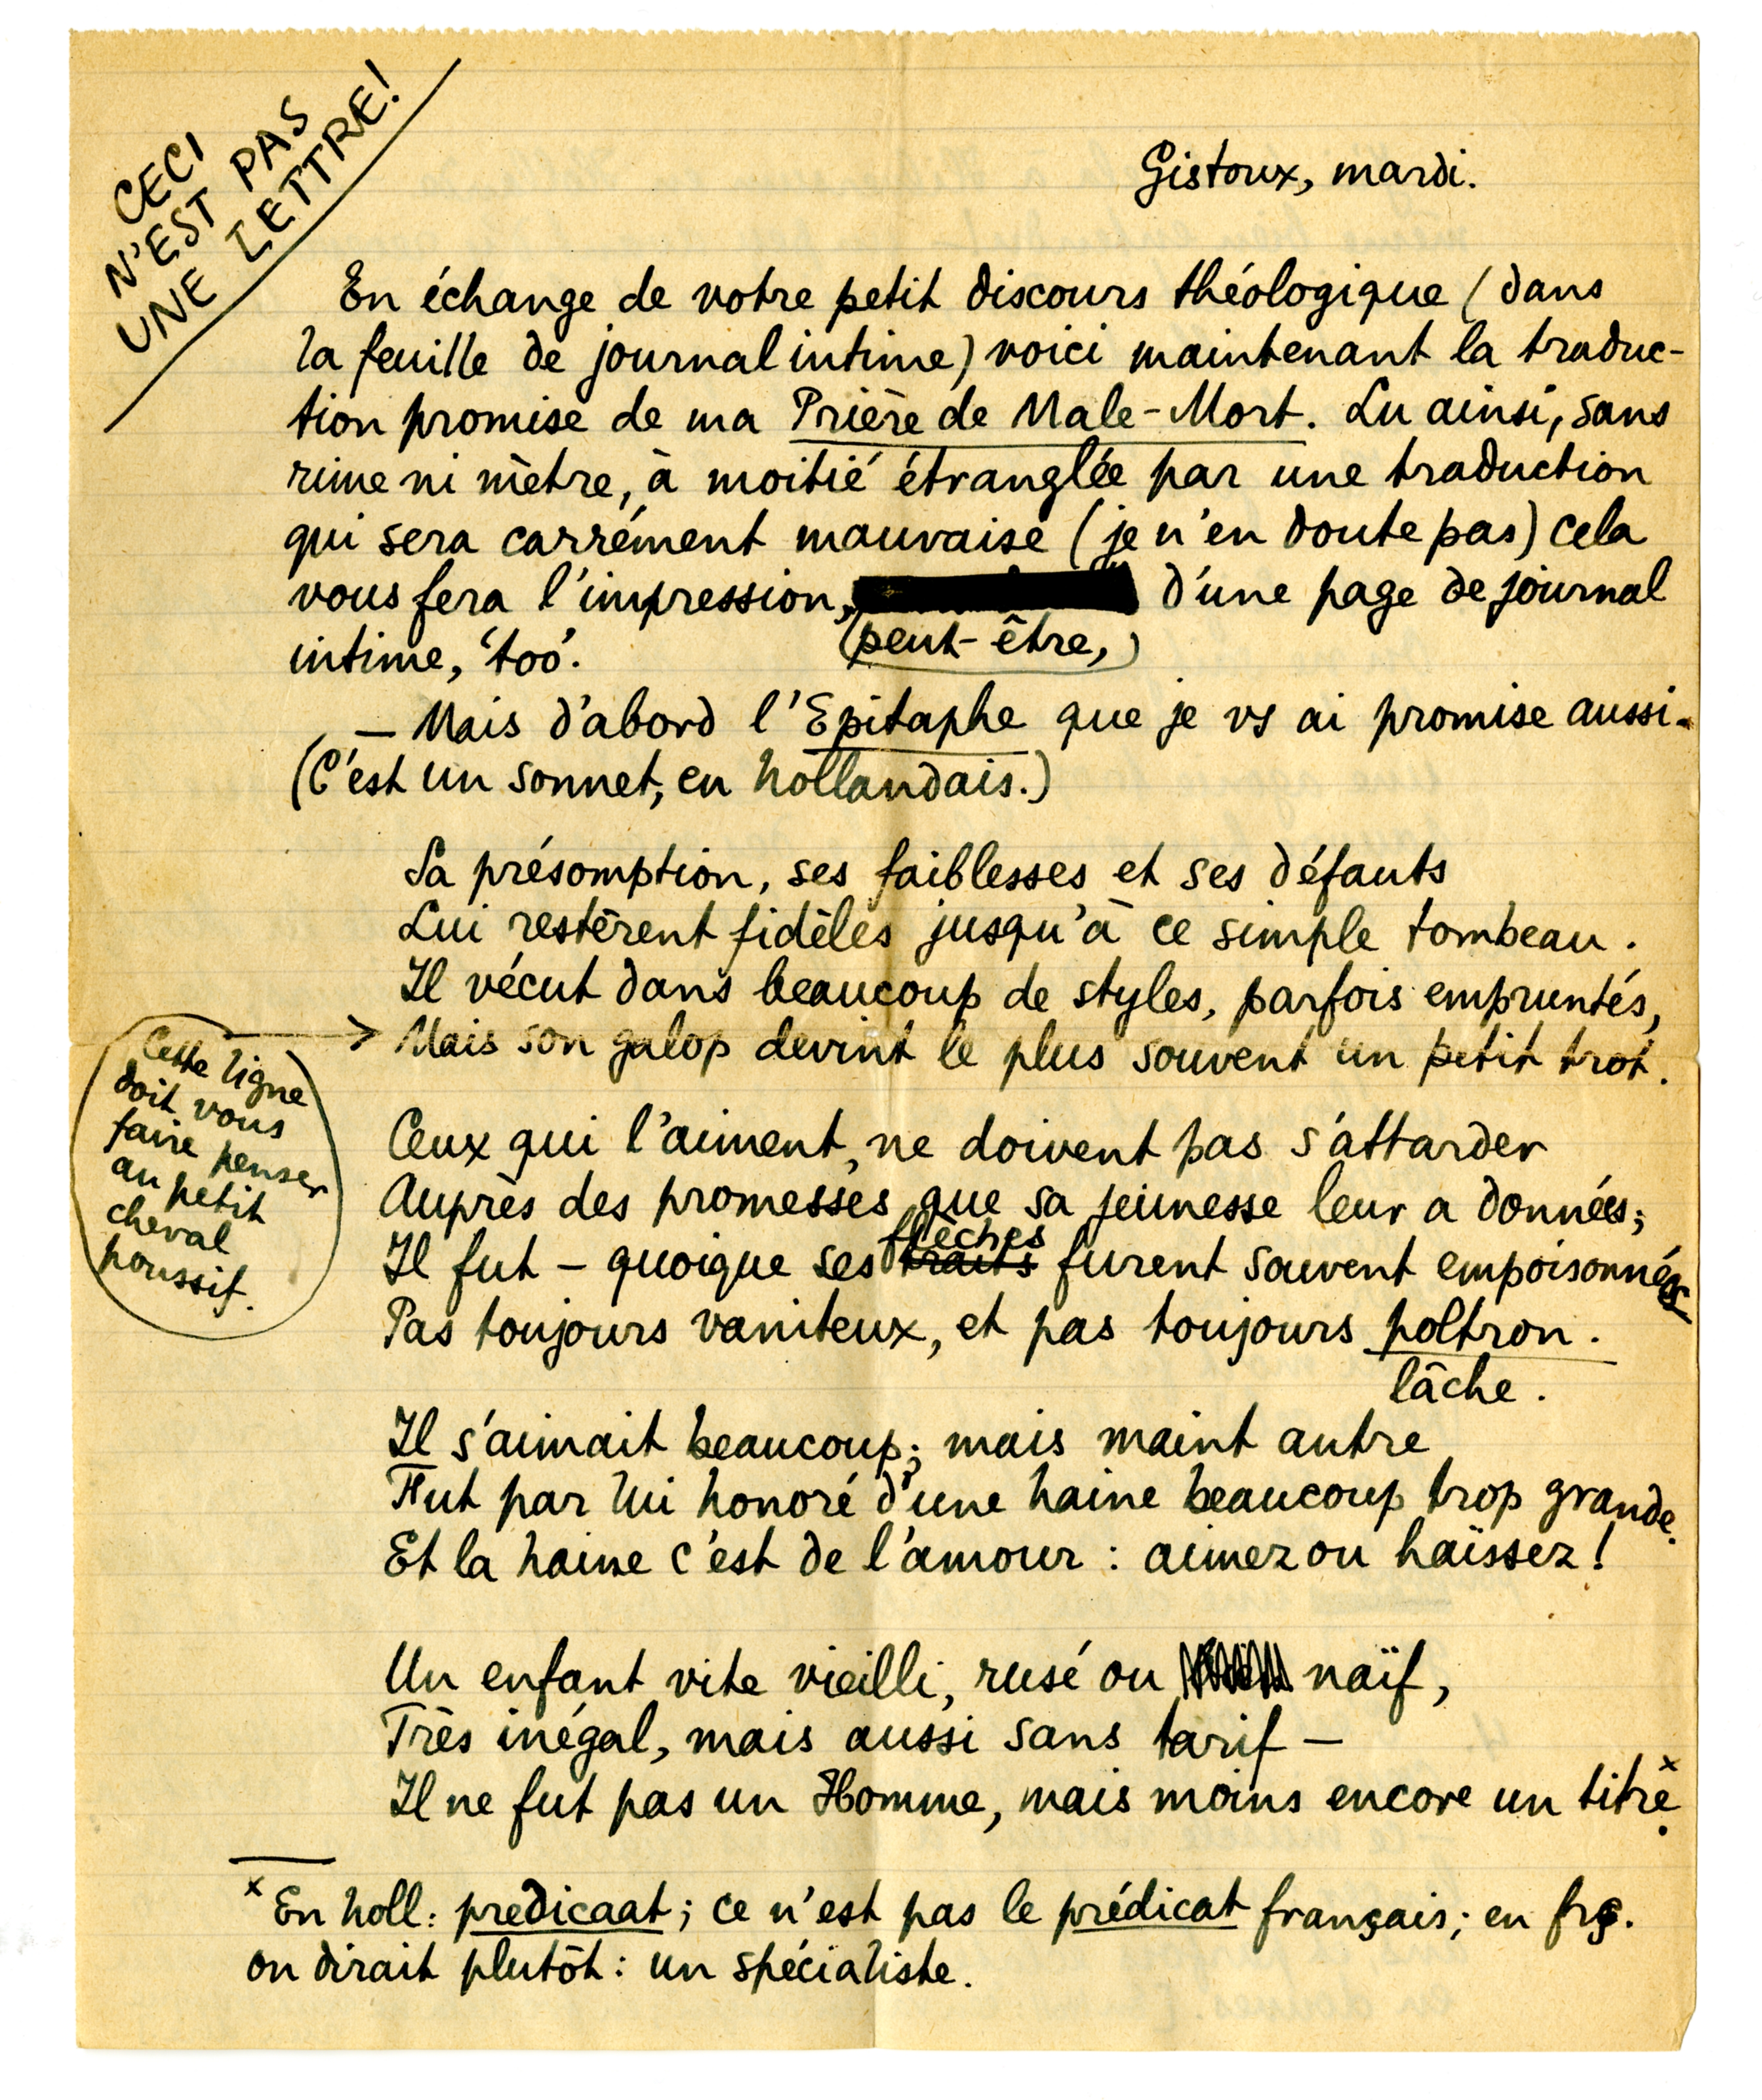 CECI
N'EST PAS
UNE LETTRE!
Gistoux, mardi.
En échange de votre petit discours théologique (dans
la feuille de journal intime) voici maintenant la traduc-
tion promise de ma Prière de Male-Mort. Lu ainsi, sans
rime ni mètre, à moitié étranglée par une traduction
qui sera carrément mauvaise (je n'en doute pas) cela
vous fera l'impression, d'une page de journal
(peut-être,)
intime, 'too'.
— Mais d'abord l'Epitaphe que je vs ai promise aussi.
(C'est un sonnet, en hollandais.)
Sa présomption, ses faiblesses et ses défauts
Lui restèrent fidèles jusqu'à ce simple tombeau.
Il vécut dans beaucoup de styles, parfois empruntés,
Mais son galop devint le plus souvent un petit trot.
Cette ligne
doit vous
faire penser
au petit
cheval
poussif.
Ceux qui l'aiment, ne doivent pas s'attarder
Auprès des promesses que sa jeunesse leur a données;
flèches
Il fut – quoique ses traits furent souvent empoisonnées
Pas toujours vaniteux, et pas toujours poltron.
lâche.
Il s'aimait beaucoup; mais maint autre
Fut par lui honoré d'une haine beaucoup trop grande.
Et la haine c'est de l'amour : aimez ou haïssez!
Un enfant vite vieilli, rusé ou naïf,
Très inégal, mais aussi sans tarif –
Il ne fut pas un Homme, mais moins encore un titre x.
x En holl: predicaat; ce n'est pas le prédicat français; en frç.
on dirait plutôt: un spécialiste.